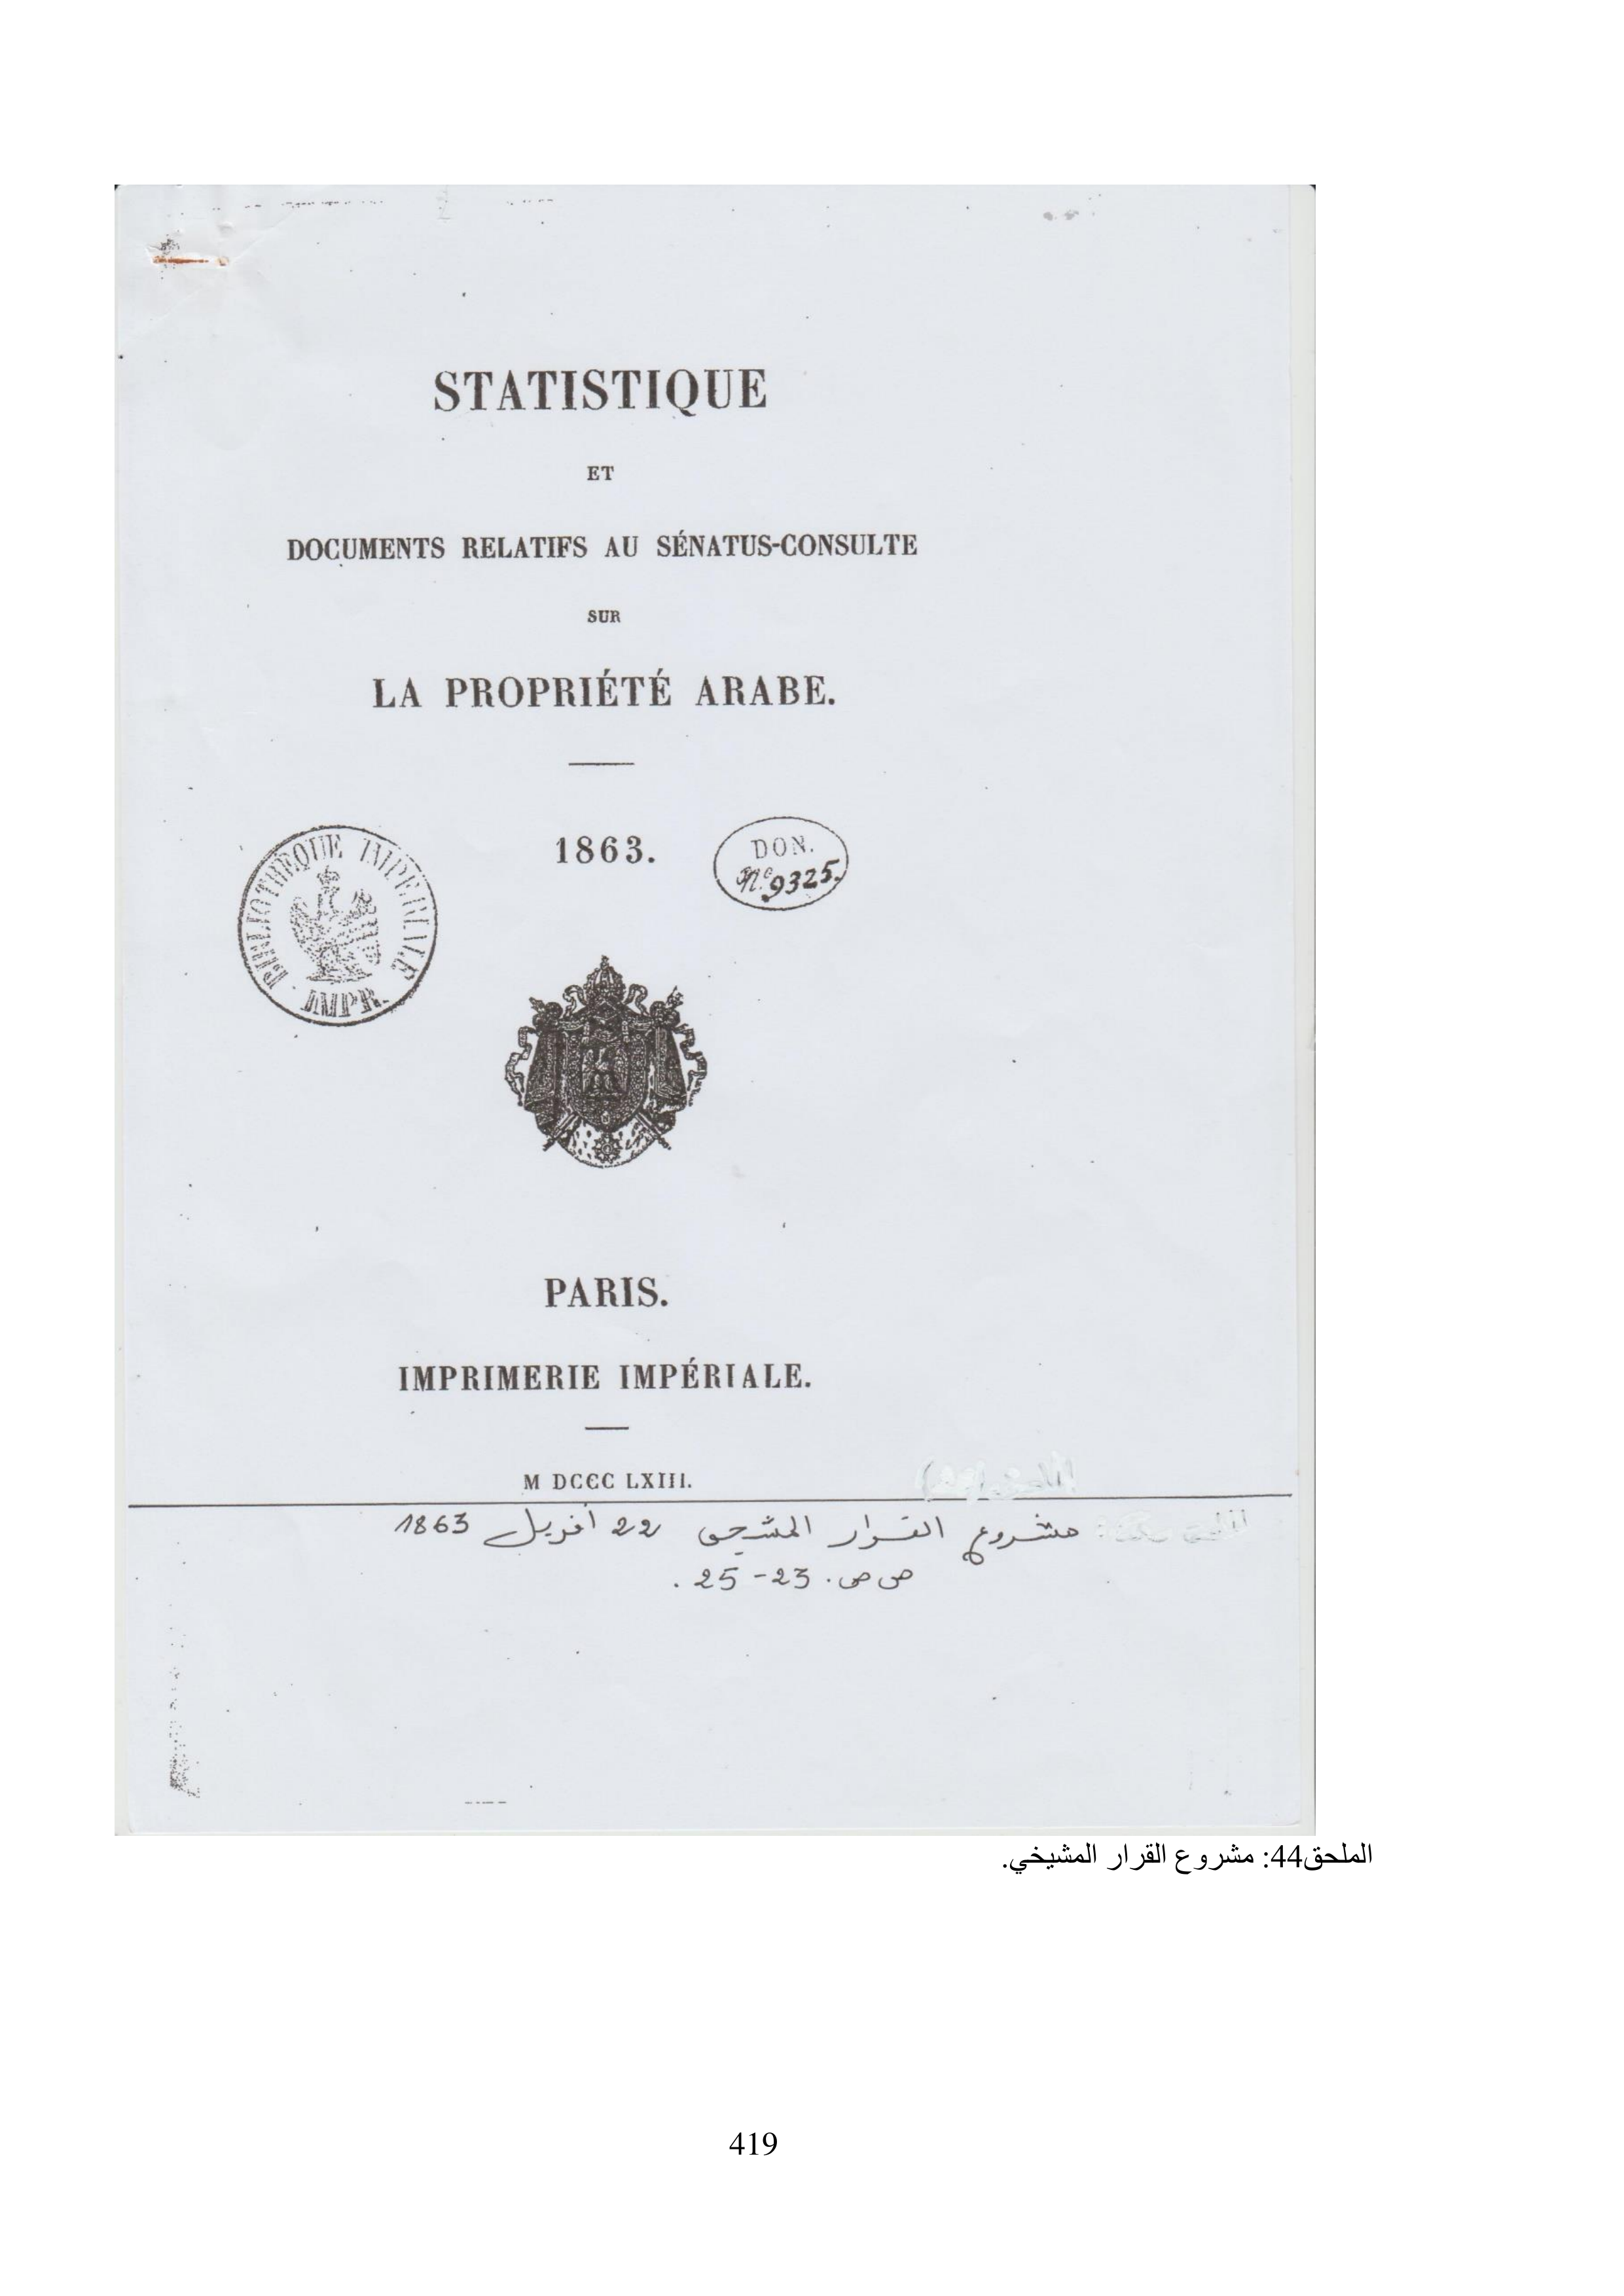 STATISTIQUE
ET
DOCUMENTS RELATIFS AU SÉNATUS-CONSULTE
SUR
LA PROPRIÉTÉ ARABE.
1863.
DON.
N.º 9325.
BIBLIOTHEQUE IMPERIALE
IMPR.
PARIS.
IMPRIMERIE IMPÉRIALE.
M DCCC LXIII.
مشروع القرار المشيخي 22 أفريل 1863
ص ص. 23-25.
الملحق44: مشروع القرار المشيخي.
419